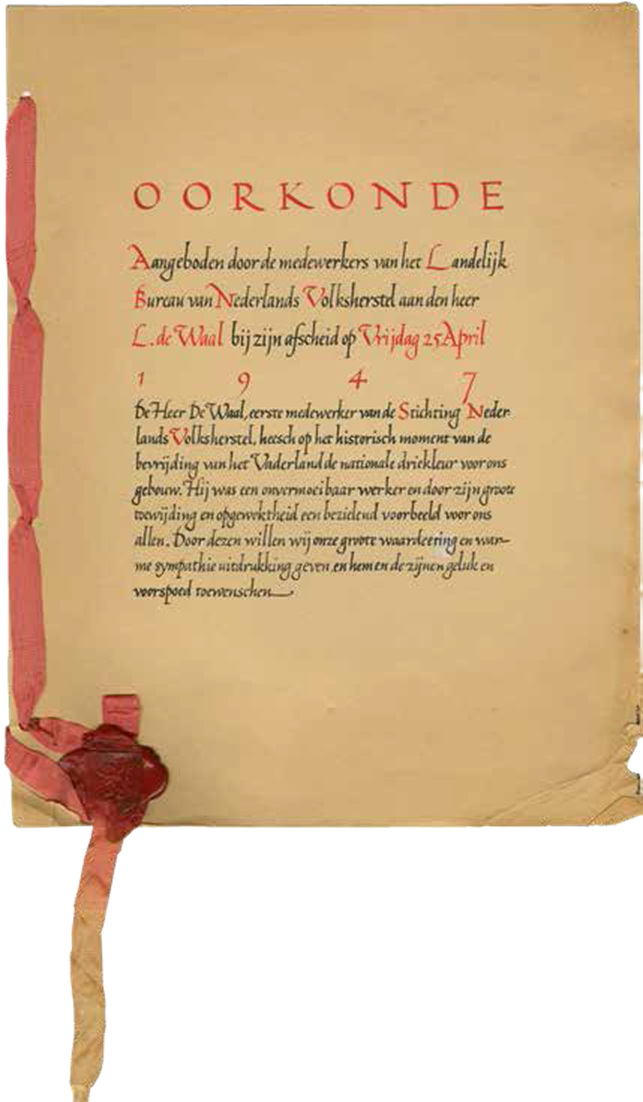 OORKONDE
Aangeboden door de medewerkers van het Landelijk
Bureau van Nederlands Volksherstel aan den heer
L. de Waal bij zijn afscheid op Vrijdag 25 April
1947
De Heer De Waal, eerste medewerker van de Stichting Neder-
lands Volksherstel, heesch op het historisch moment van de
bevrijding van het Vaderland de nationale driekleur voor ons
gebouw. Hij was een onvermoeibaar werker en door zijn groote
toewijding en opgewektheid een bezielend voorbeeld voor ons
allen. Door dezen willen wij onze groote waardeering en war-
me sympathie uitdrukking geven en hem en de zijnen geluk en
voorspoed toewenschen